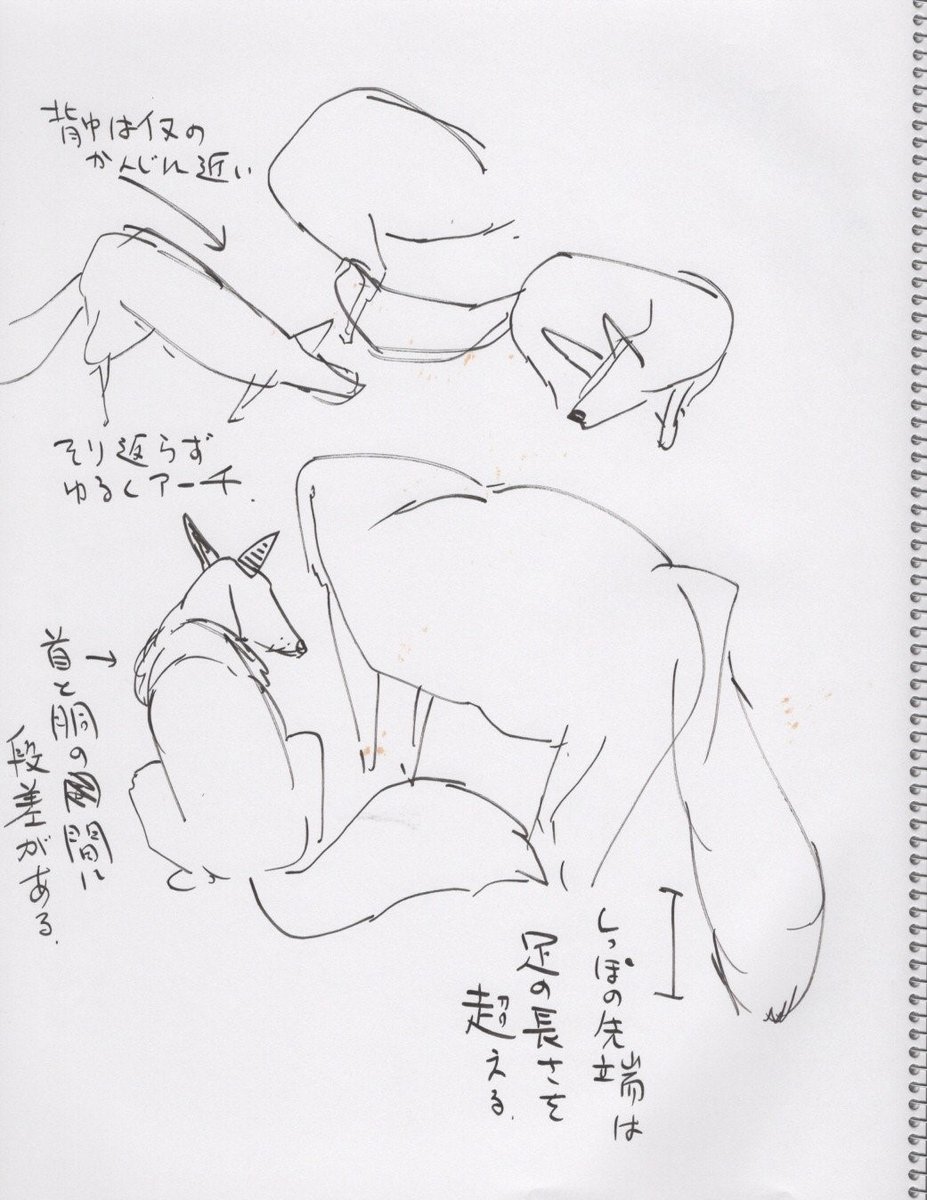 背中はイヌの
かんじに近い
そり返らず
ゆるくアーチ.
首と胴の間に
段差がある.
しっぽの先端は
足の長さを
超える.